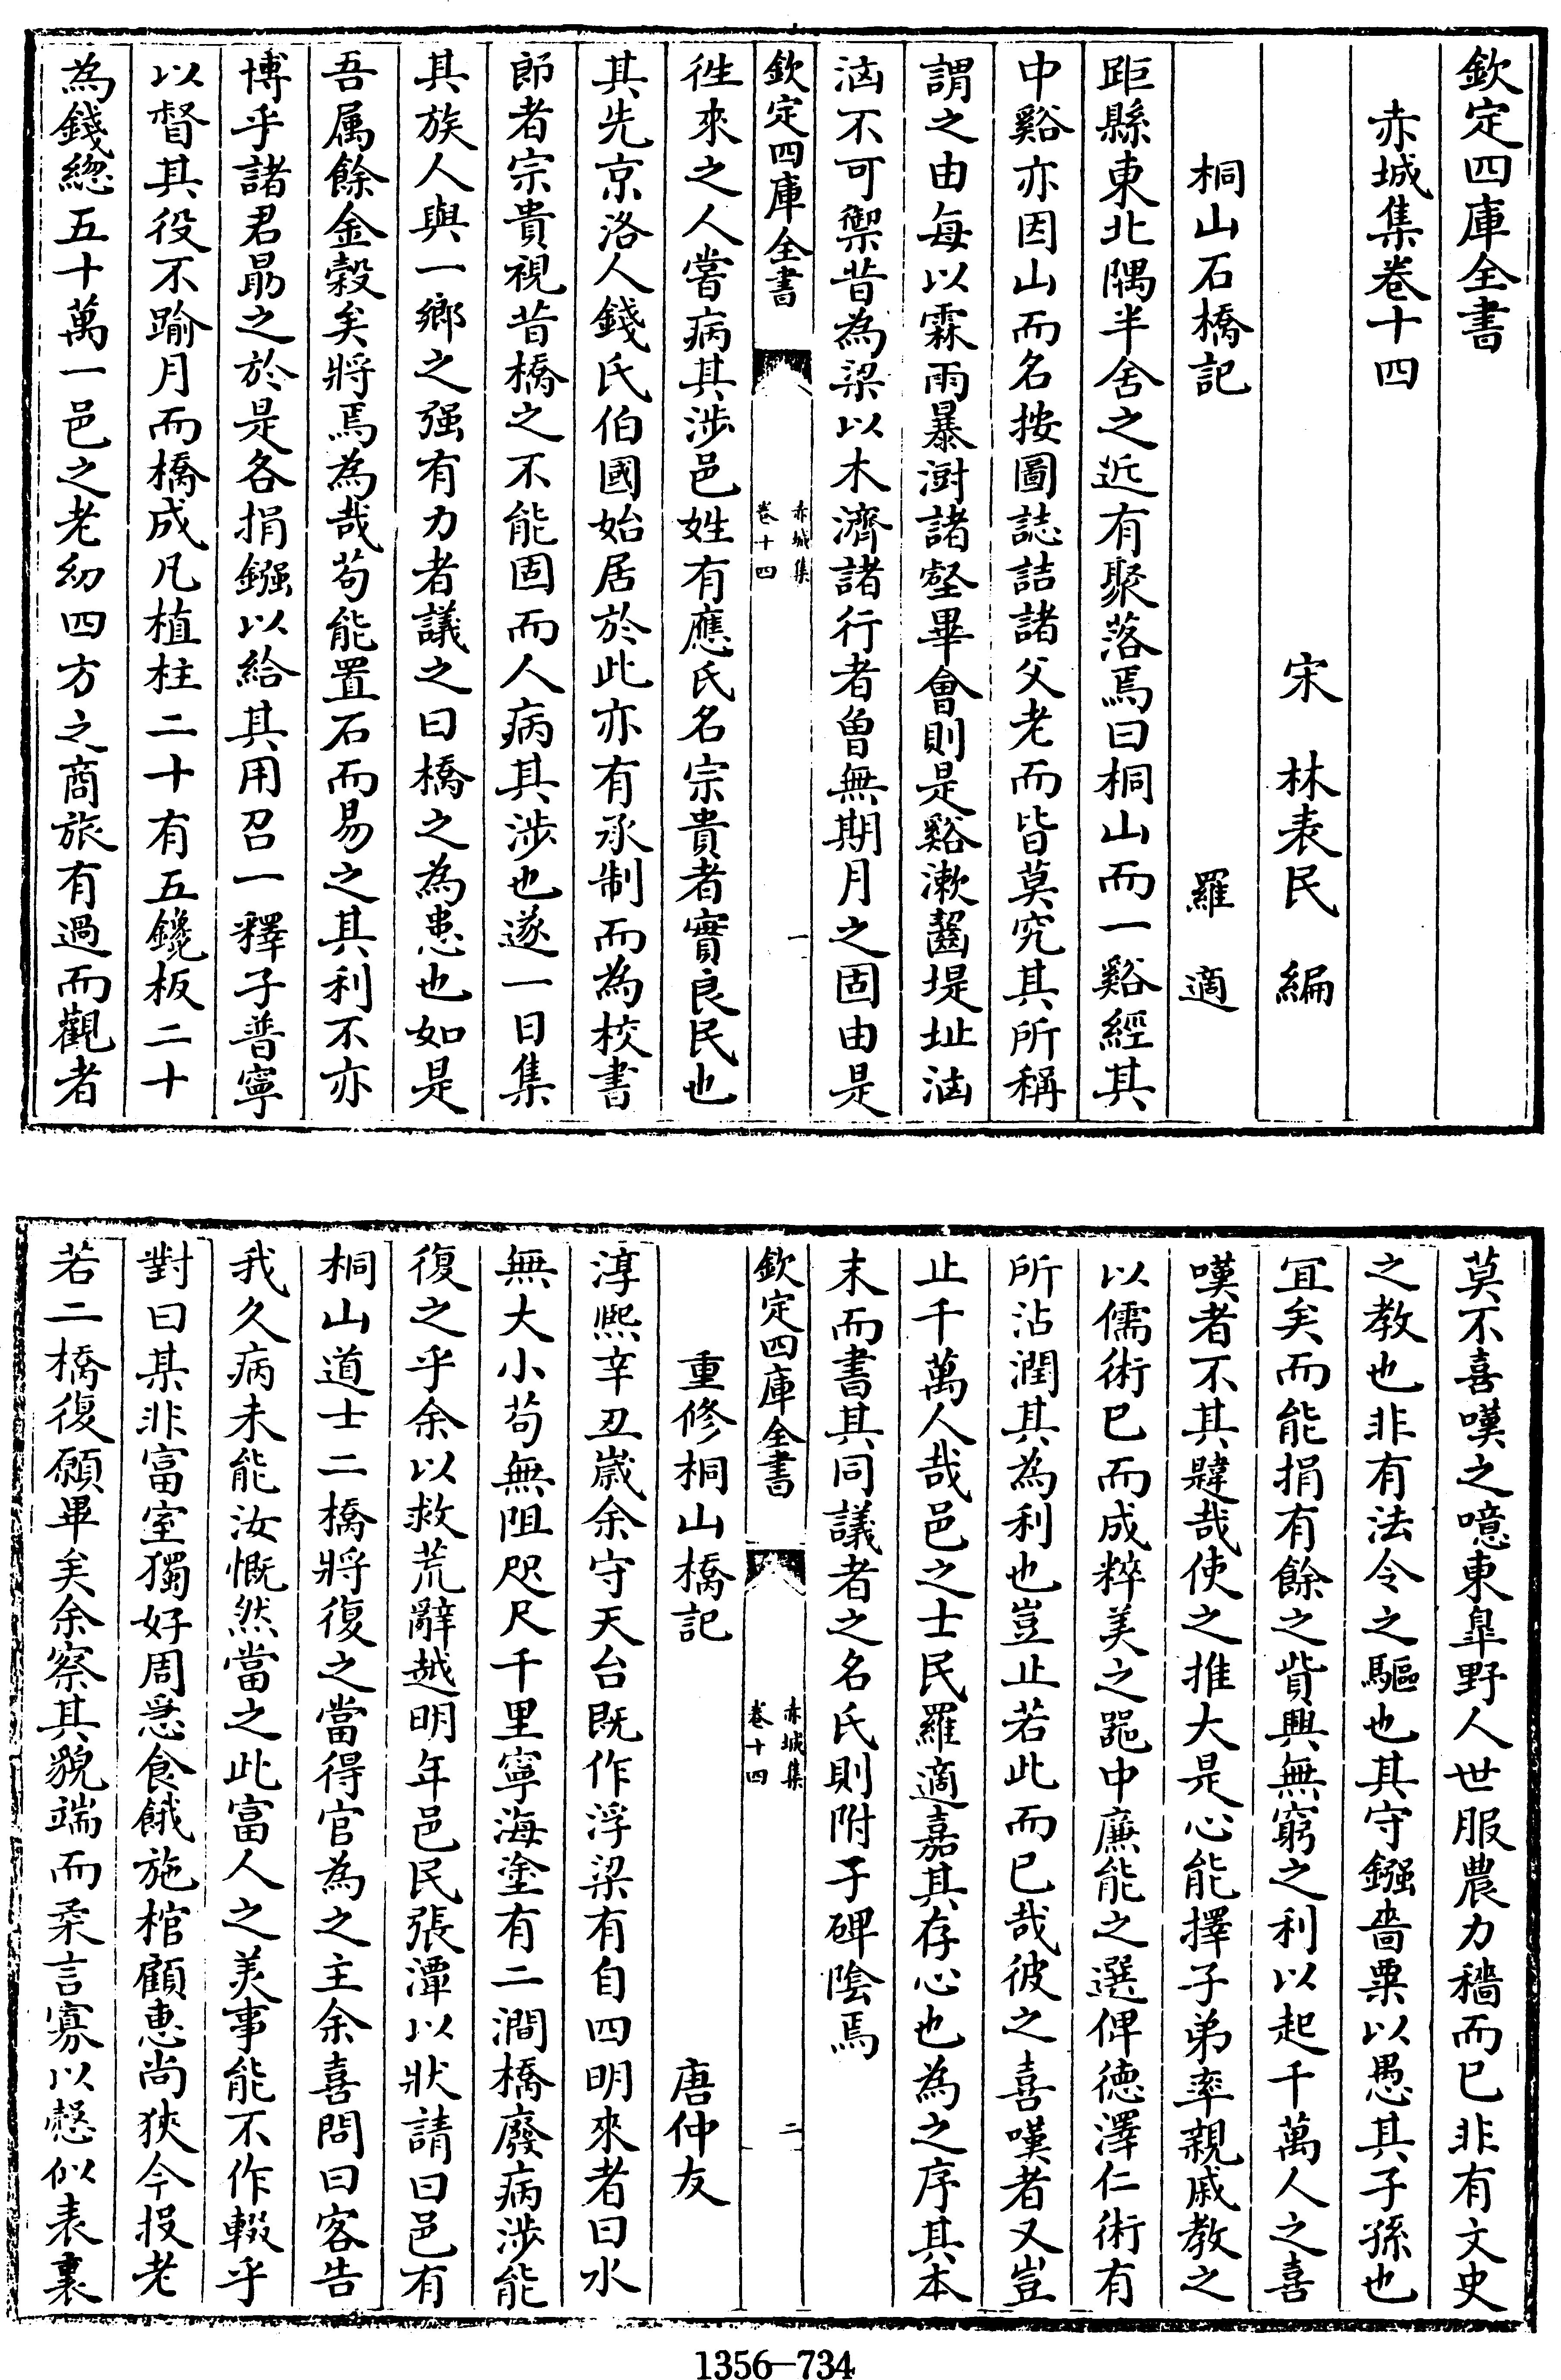 欽定四庫全書
赤城集卷十四
宋　林表民　編
桐山石橋記　羅　適
距縣東北隅半舍之近有聚落焉曰桐山而一谿經其
中谿亦因山而名按圖誌詰諸父老而皆莫究其所稱
謂之由每以霖雨暴澍諸壑畢會則是谿漱齧堤址洶
洶不可禦昔為梁以木濟諸行者曾無期月之固由是
欽定四庫全書
赤城集
卷十四
一
徃來之人嘗病其涉邑姓有應氏名宗貴者實良民也
其先京洛人錢氏伯國始居於此亦有承制而為校書
郎者宗貴視昔橋之不能固而人病其涉也遂一日集
其族人與一鄉之强有力者議之曰橋之為患也如是
吾属餘金穀矣將焉為哉苟能置石而易之其利不亦
博乎諸君勗之於是各捐鏹以給其用召一釋子普寧
以督其役不踰月而橋成凡植柱二十有五鑱板二十
為錢緫五十萬一邑之老幼四方之商旅有過而觀者
莫不喜嘆之噫東臯野人世服農力穡而已非有文史
之教也非有法令之驅也其守鏹嗇粟以愚其子孫也
宜矣而能捐有餘之貲興無窮之利以起千萬人之喜
嘆者不其韙哉使之推大是心能擇子弟率親戚教之
以儒術已而成粹美之器中廉能之選俾德澤仁術有
所沾潤其為利也豈止若此而已哉彼之喜嘆者又豈
止千萬人哉邑之士民羅適嘉其存心也為之序其本
末而書其同議者之名氏則附于碑陰焉
欽定四庫全書
赤城集
卷十四
二
重修桐山橋記　唐仲友
淳熙辛丑歲余守天台既作浮梁有自四明來者曰水
無大小苟無阻咫尺千里寧海塗有二澗橋廢病涉能
復之乎余以救荒辭越明年邑民張潭以狀請曰邑有
桐山道士二橋將復之當得官為之主余喜問曰客告
我久病未能汝慨然當之此富人之美事能不作輟乎
對曰某非富室獨好周急食餓施棺顧惠尚狹今投老
若二橋復願畢矣余察其貌端而柔言寡以慤似表裏
1356—734